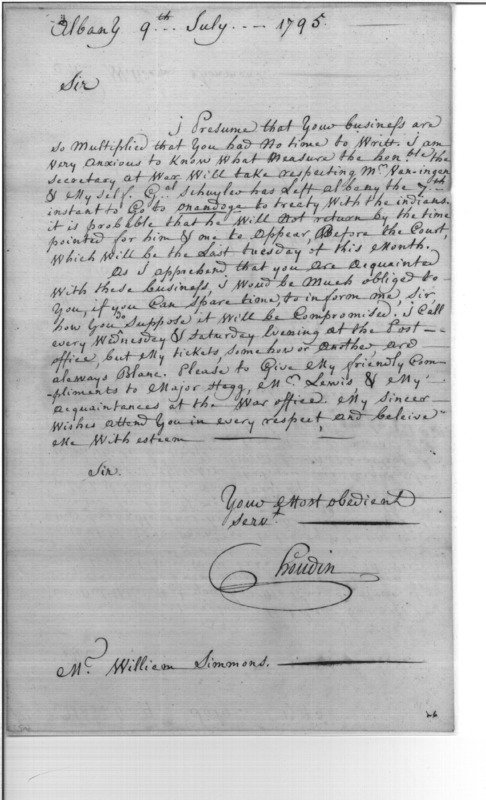 Albany 9th July 1795.
Sir
I Presume that Your business are
so Multiplied that You had No time to Writt. I am
very Anxious to Know What Measure the hon.ble the
secretary at War Will take respecting Mr. Van-ingen
& My self. Gal Schuyler has Left albany the 7th
instant to Go to onandago to treaty With the indians.
it is probable that he Will Not return by the time
pointed for him & me to Appear, Before the Court,
Which Will be the Last tuesday of this Month.
As I apprehend that you are Acquainted
With these business, I Woud be Much obliged to
You, if you Can spare time, to inform me, Sir
how You do suppose it Will be Compromised. I Call
every Wednesday & Saturday evening at the Post
office, but My tickets, some how or Another, are
aleways Blanc. Please to Give My friendly Com-
pliments to Major Stagg, Mr. Lewis & My
Acquaintances at the War office. My Sincer
Wishes Attend You in every respect, and beleive
Me With esteem
Sir.
Your Most obedient
Servt.
Houdin
Mr. William Simmons.